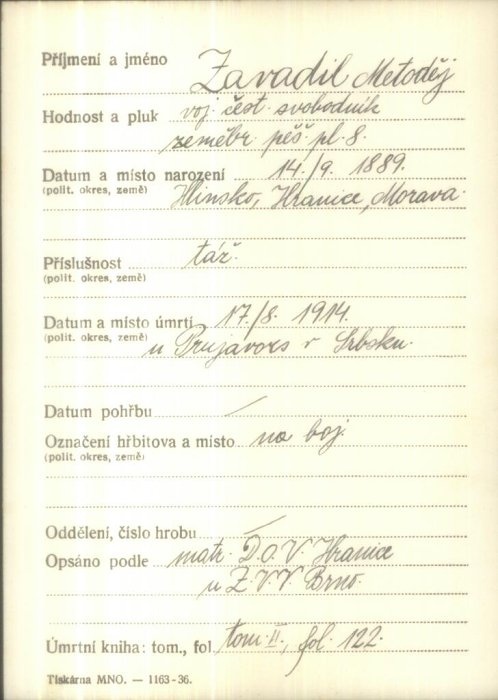 Příjmení a jméno Zavadil Metoděj
Hodnost a pluk voj. čest. svobodník
zeměbr. pěš. pl. 8.
Datum a místo narození 14./9. 1889.
(polit. okres, země) Hlinsko, Hranice, Morava.
Příslušnost táž.
(polit. okres, země)
Datum a místo úmrtí 17./8. 1914.
(polit. okres, země) u Prujavors v Srbsku.
Datum pohřbu
Označení hřbitova a místo na boj.
(polit. okres, země)
Oddělení, číslo hrobu
Opsáno podle matr. D.O.V. Hranice
u Z.V.V. Brno.
Úmrtní kniha: tom., fol. tom II., fol. 122.
Tiskárna MNO. — 1163-36.